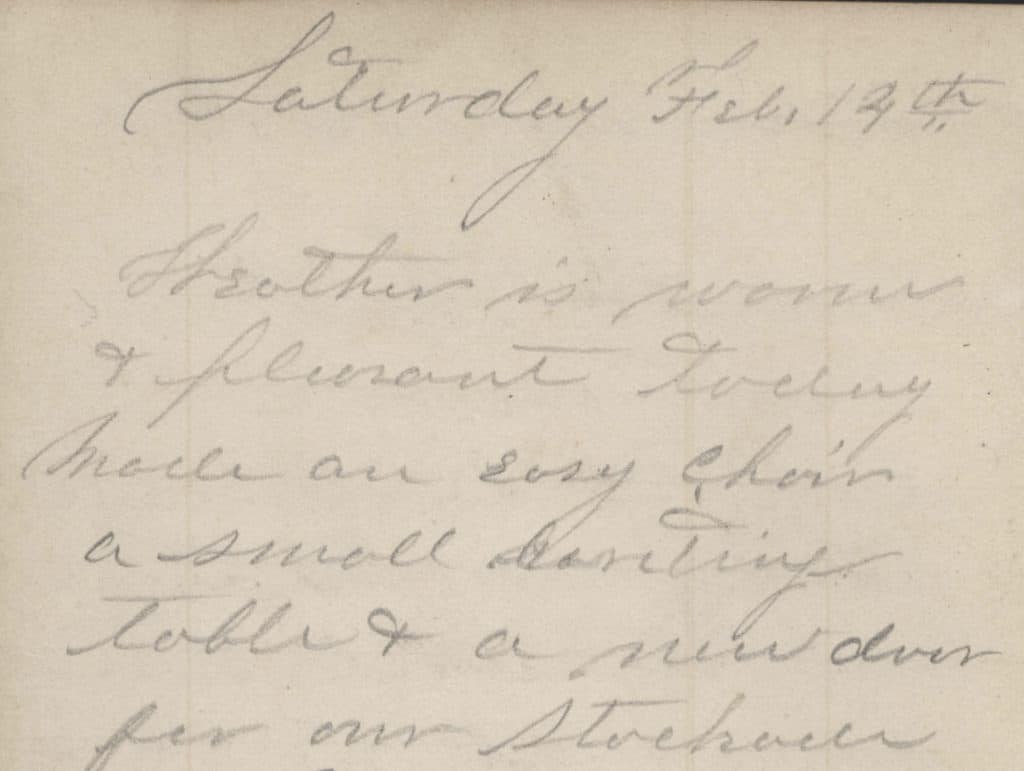 Saturday Feb. 13th
Weather is warm
& pleasant today
Made an easy chair
a small writing
table & a new door
for our Stockade